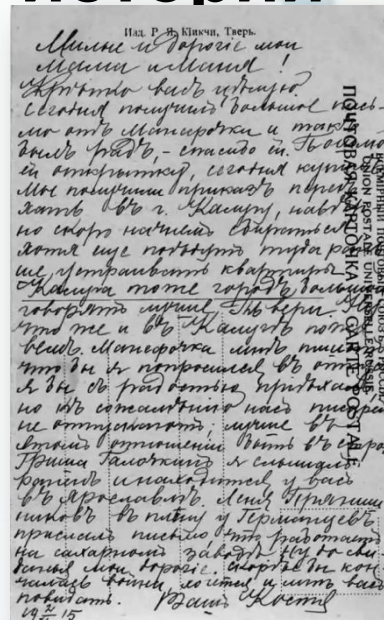 истории
Изд. Р. Я. Кликчи, Тверь.
Милые и дорогіе мои
Мама и Маня!
Крѣпко васъ цѣлую.
Сегодня получилъ большое пись-
мо отъ Манефочки и такъ
былъ радъ, - спасибо ей.
ей открытку, сегодня
Мы получили приказъ переѣ-
хать въ г. Калугу,
но скоро начнемъ собираться
хотя еще поѣдутъ туда рань-
ше, устраивать квартиры
Калуга тоже городъ большой
говорятъ лучше Твери.
что же и въ Калугѣ
Манефочка мнѣ пишетъ
что бы я попросился въ
я бы съ радостью
но къ сожалѣнію насъ теперь
не отпускаютъ; лучше въ
этомъ отношеніи быть въ
Гриша Галочкинъ я слышалъ
раненъ и находится у васъ
въ Ярославлѣ. Леня
въ плѣну у Германцевъ
прислалъ письмо что работаетъ
на сахарномъ заводѣ. Ну до сви-
данья мои дорогіе. Скорѣе бы кон-
чилась война, хочется и мнѣ васъ
повидать. Вашъ Костя
19 2/II 15
ПОЧТОВАЯ КАРТОЧКА. CARTE POSTALE
ВСЕМІРНЫЙ ПОЧТОВЫЙ СОЮЗЪ. РОССІЯ.
UNION POSTALE UNIVERSELLE. RUSSIE.